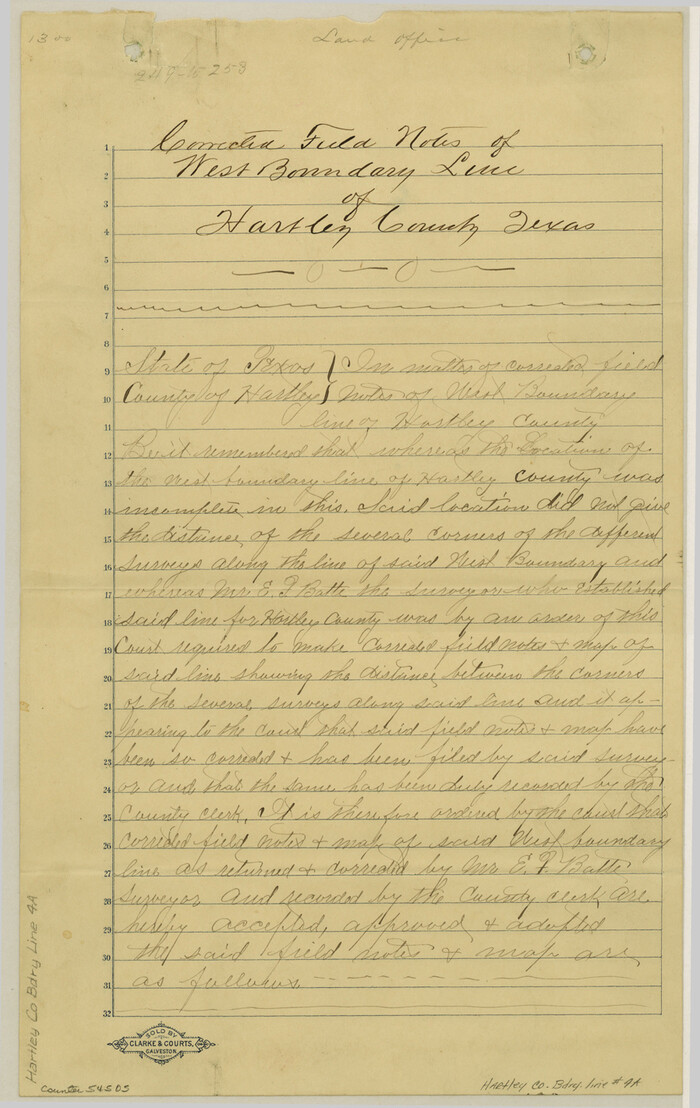 1300
Land Office
249-15258
Corrected Field Notes of
West Boundary Line
of
Hartley County Texas
State of Texas } In matter of corrected field
County of Hartley } Notes of West Boundary
line of Hartley County
Be it remembered that whereas the Location of
the west boundary line of Hartley County was
incomplete in this. Said location did not give
the distance of the several corners of the different
surveys along the line of said West Boundary and
whereas Mr. E. P. Batte the surveyor who established
said line for Hartley County was by an order of this
Court required to make corrected field notes & map of
said line showing the distance between the corners
of the several surveys along said line and it ap-
pearing to the court that said field notes & map have
been so corrected & has been filed by said survey-
or and that the same has been duly recorded by the
County clerk, It is therefore ordered by the court that
corrected field notes & map of said West boundary
line as returned & corrected by Mr E. P. Batte
Surveyor and recorded by the County clerk, are
hereby accepted, approved & adopted
the said field notes & map are
as follows
1
2
3
4
5
6
7
8
9
10
11
12
13
14
15
16
17
18
19
20
21
22
23
24
25
26
27
28
29
30
31
32
SOLD BY
CLARKE & COURTS,
GALVESTON
Hartley Co Bdry Line 4A
Counter 54505
Hartley Co. Bdry. Line #4A